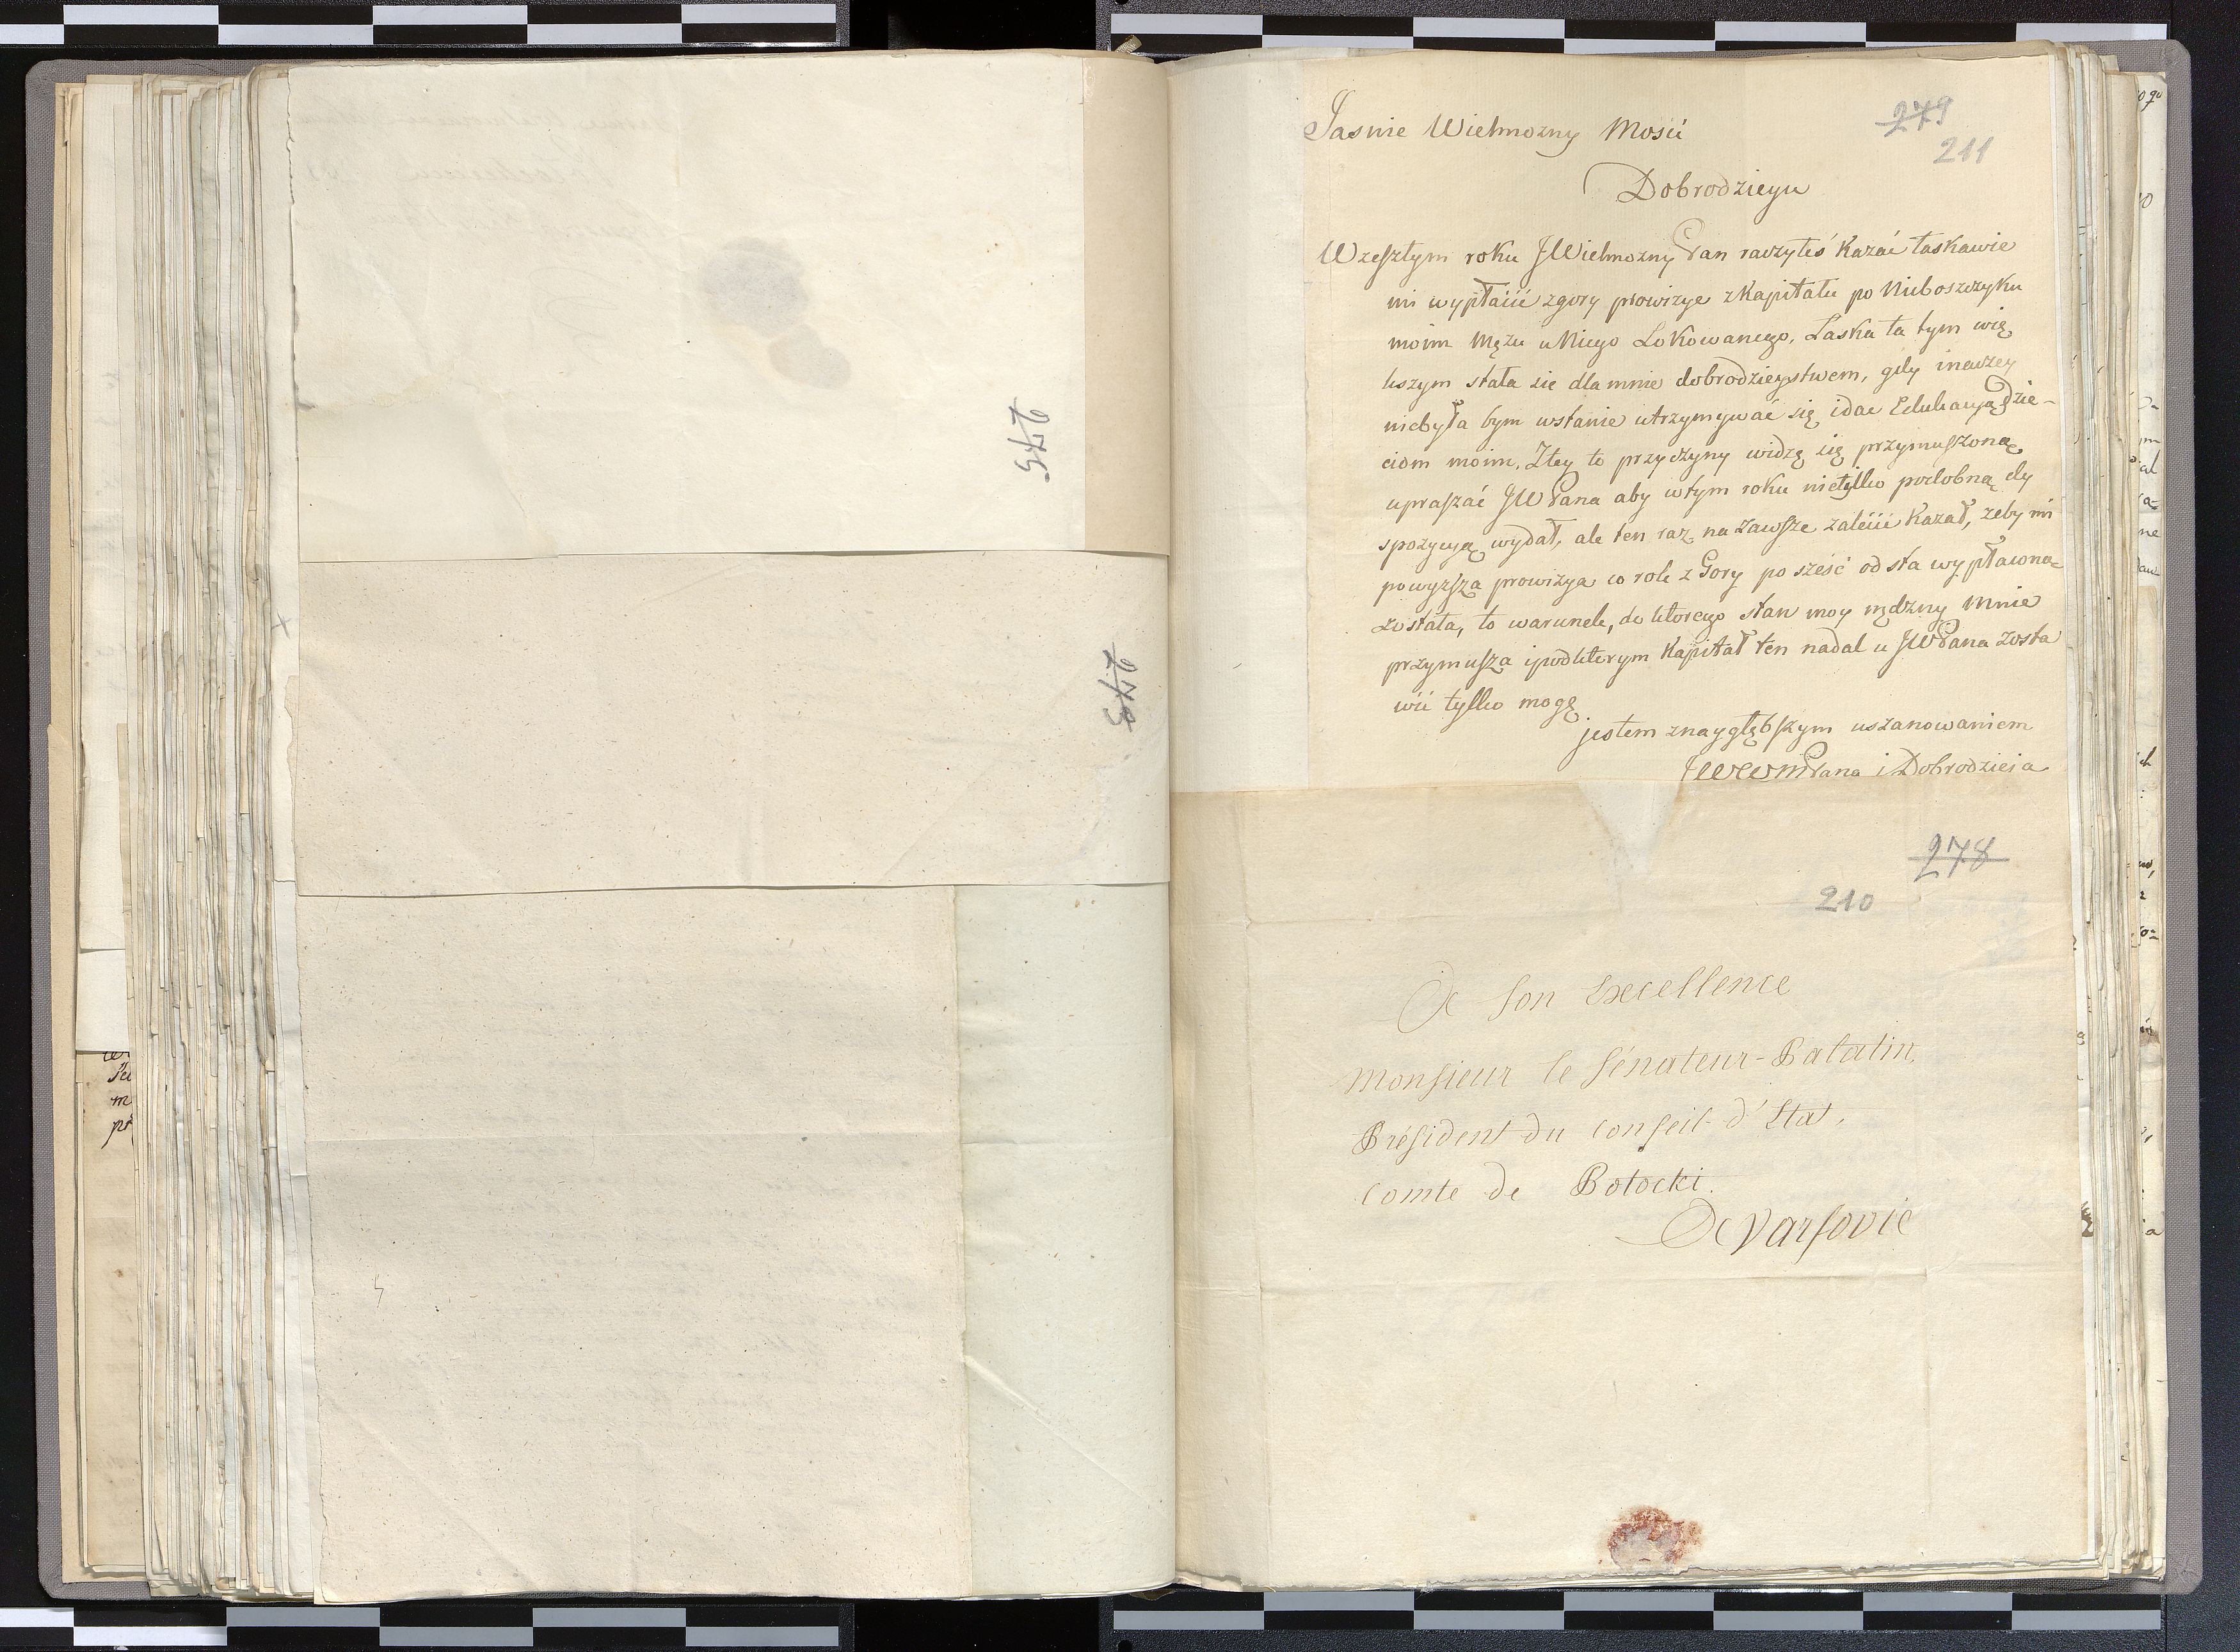 275
273
279
211
Jasnie Wielmozny Mosci
Dobrodzieyu
Wzeszłym roku JWielmozny Pan raczyłeś kazać łaskawie
mi wypłacić zgory prowizye zkapitału po Nieboszczyku
moim Mężu u Niego Lokowanego. Łaska ta tym wię
kszym stała się dla mnie dobrodzieystwem, gdy inaczey
niebyła bym wstanie utrzymywać się idac Edukacyą dzie-
ciom moim. Ztey to przyczyny widzę się przymuszoną
upraszać JWPana aby wtym roku nietylko podobną dy
spozycyą wydał, ale ten raz na zawsze zalecić kazał, zeby mi
powyzsza prowizya co rok z Gory po sześć od sta wypłacona
została, to warunek, do ktorego stan moy nędzny mnie
przymusza ipodktorym kapitał ten nadal u JWPana zosta
wić tylko mogę
jestem znaygłębszym uszanowaniem
JWWMPana i Dobrodzieia
278
210
A Son Excellence
Monsieur le Sénateur-Palatin,
Président du Conseil d'Etat,
Comte de Potocki.
A Varsovie